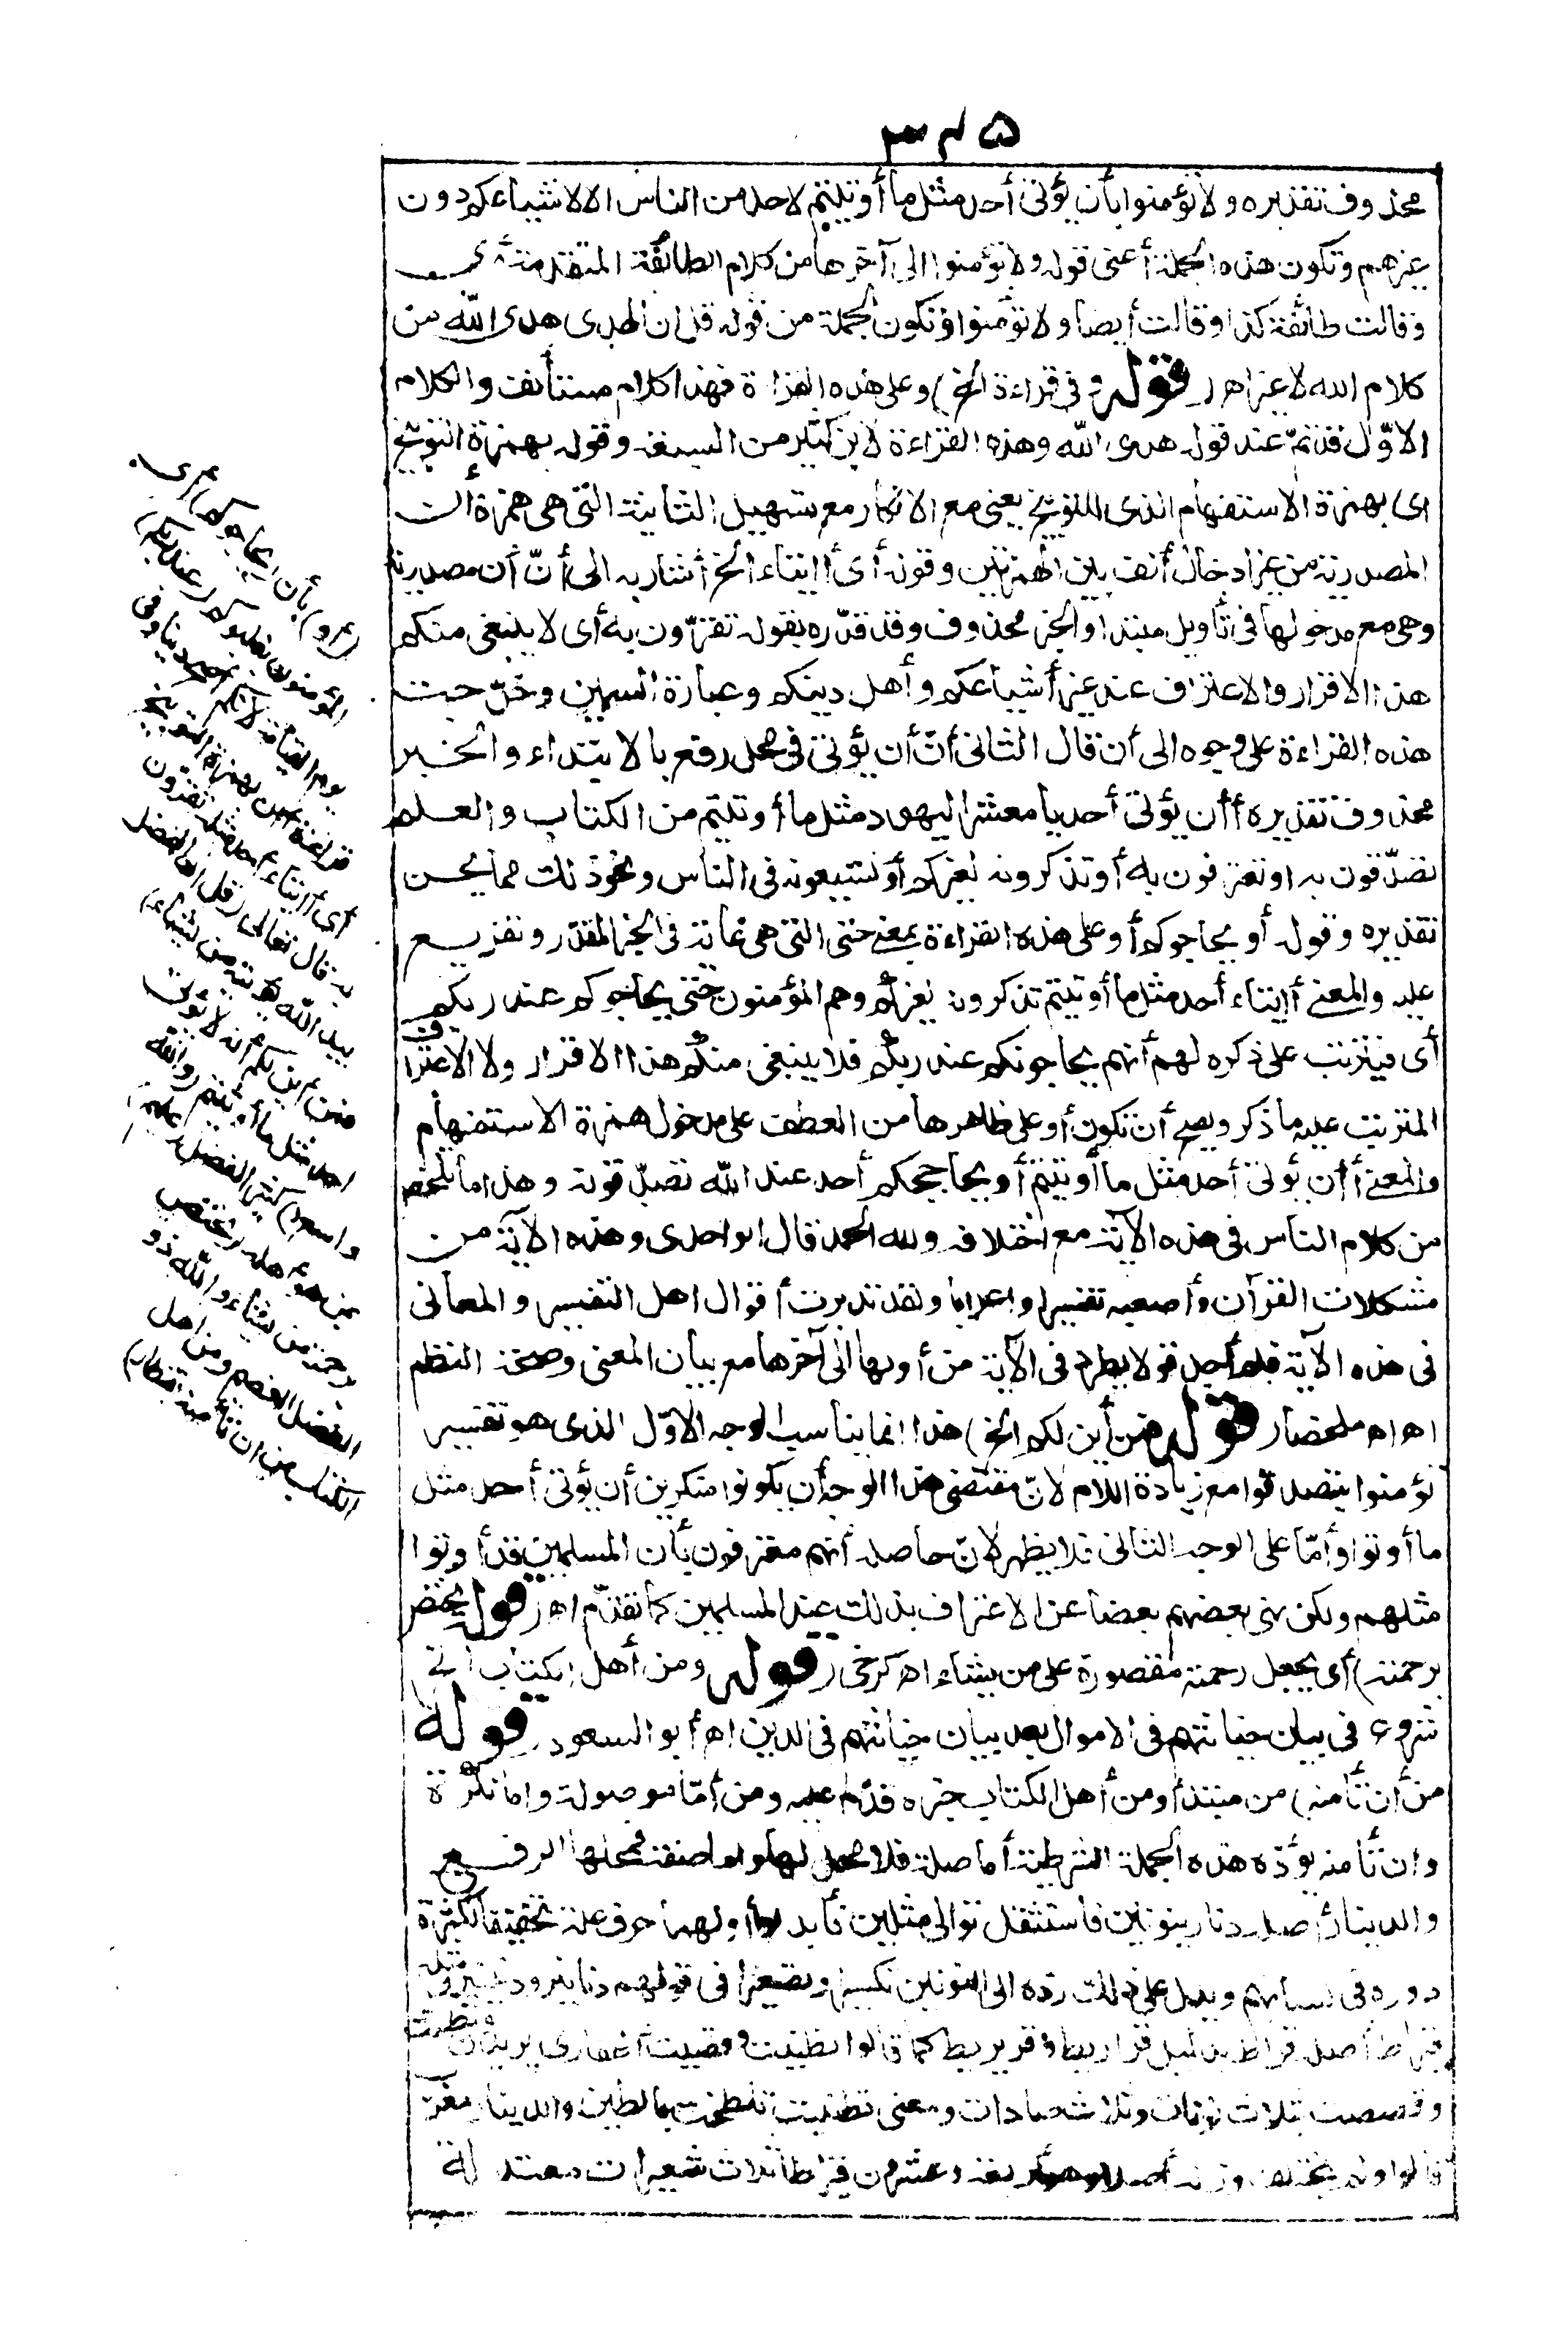 ٣٤٥
محذوف تقديره ولا تؤمنوا بأن يؤتى أحد مثل ما أوتيتم لاحد من الناس الا لاشياعكم دون
غيرهم وتكون هذه الجملة أعنى قوله ولا تؤمنوا الى آخرها من كلام الطائفة المتقدمة أى
وقالت طائفة كذا وقالت أيضا ولا تؤمنوا وتكون الجملة من قوله قل ان الهدى هدى الله من
كلام الله لا غير اهـ (قوله وفى قراءة الخ) وعلى هذه القراءة فهذا كلام مستأنف والكلام
الاوّل قد تمّ عند قوله هدى الله وهذه القراءة لابن كثير من السبعة وقوله بهمزة التوبيخ
اى بهمزة الاستفهام الذى للتوبيخ يعنى مع الانكار مع تسهيل الثانية التى هى همزة أن
المصدرية من غير ادخال ألف بين الهمزتين وقوله أى أايتاء الخ أشار به الى أنّ أن مصدرية
وهى مع مدخولها فى تأويل مبتدا والخبر محذوف وقد قدّره بقوله تقرّون به أى لا ينبغى منكم
هذا الاقرار والاعتراف عند غير أشياعكم وأهل دينكم وعبارة السمين وخرّجت
هذه القراءة على وجوه الى أن قال الثانى أنّ أن يؤتى فى محل رفع بالابتداء والخبر
محذوف تقديره أأن يؤتى أحد يا معشر اليهود مثل ما أوتيتم من الكتاب والعلم
تصدّقون به او تعترفون به أو تذكرونه لغيركم أو تشيعونه فى الناس ونحو ذلك مما يحسن
تقديره وقوله أو يحاجوكم أو على هذه القراءة بمعنى حتى التى هى غاية فى الخبر المقدّر وتفريع
عليه والمعنى أايتاء أحد مثل ما أوتيتم تذكرونه لغيركم وهم المؤمنون حتى يحاجوكم عند ربكم
أى فيترتب على ذكره لهم أنهم يحاجونكم عند ربكم فلا ينبغى منكم هذا الاقرار ولا الاعتراف
المترتب عليه ما ذكر ويصح أن تكون أو على ظاهرها من العطف على مدخول همزة الاستفهام
والمعنى أأن يؤتى أحد مثل ما أوتيتم أو يحاججكم أحد عند الله تصدّقونه وهذا ما تلخص
من كلام الناس فى هذه الآية مع اختلافه ولله الحمد قال الواحدى وهذه الآية من
مشكلات القرآن وأصعبه تفسيرا واعرابا ولقد تدبرت أقوال اهل التفسير والمعانى
فى هذه الآية فلم أجد قولا يطرد فى الآية من أولها الى آخرها مع بيان المعنى وصحة النظم
اهـ اهـ ملخصا (قوله فمن أين لكم الخ) هذا انما يناسب الوجه الاوّل الذى هو تفسير
تؤمنوا بتصدقوا مع زيادة اللام لانّ مقتضى هذا الوجه أن يكونوا منكرين أن يؤتى أحد مثل
ما أوتوا وأمّا على الوجه الثانى فلا يظهر لانّ حاصله أنهم معترفون بأن المسلمين قد أوتوا
مثلهم ولكن نهى بعضهم بعضا عن الاعتراف بذلك عند المسلمين كما تقدّم اهـ (قوله يختص
برحمته) أى يجعل رحمته مقصورة على من يشاء اهـ كرخى (قوله ومن أهل الكتاب الخ
شروع فى بيان خيانتهم فى الاموال بعد بيان خيانتهم فى الدين اهـ أبو السعود (قوله
من أن تأمنه) من مبتدأ ومن أهل الكتاب خبره قدّم عليه ومن أمّا موصولة واما نكرة
وان تأمنه يؤدّه هذه الجملة الشرطية أما صلة فلا محل لها واما صفة فمحلها الرفع
والدينار أصله دنار بنونين فاستثقل توالى مثلين فأبدلوا أولهما حرف علة تخفيفا لكثرة
دوره فى لسانهم ويدل على ذلك ردّه الى النونين تكسيرا وتصغيرا فى قولهم دنانير ودنينير ومثله
قيراط أصله قراط بدليل قراريط وقريريط كما قالوا تظنيت وقصيت أظفارى يريدون تظننت
وقصصت بثلاث نونات وثلاث صادات ومعنى والدينار معرّب
قالوا ولم يختلف وزنه أصلا وهو أربعة وعشرون قيراطا ثلاث شعيرات معتدلة
(أو) بأن (يحاجوكم) أى
المؤمنون يغلبوكم (عند ربكم)
يوم القيامة لانكم أصح دينا وفى
قراءة أأن بهمزة التوبيخ
أى أايتاء أحد مثله تقرّون
به قال تعالى (قل ان الفضل
بيد الله يؤتيه من يشاء)
فمن أين لكم أنه لا يؤتى
احد مثل ما أوتيتم (والله
واسع) كثير الفضل (عليم)
بمن هو أهله (يختص
برحمته من يشاء والله ذو
الفضل العظيم ومن اهل
الكتاب من ان تأمنه بقنطار)